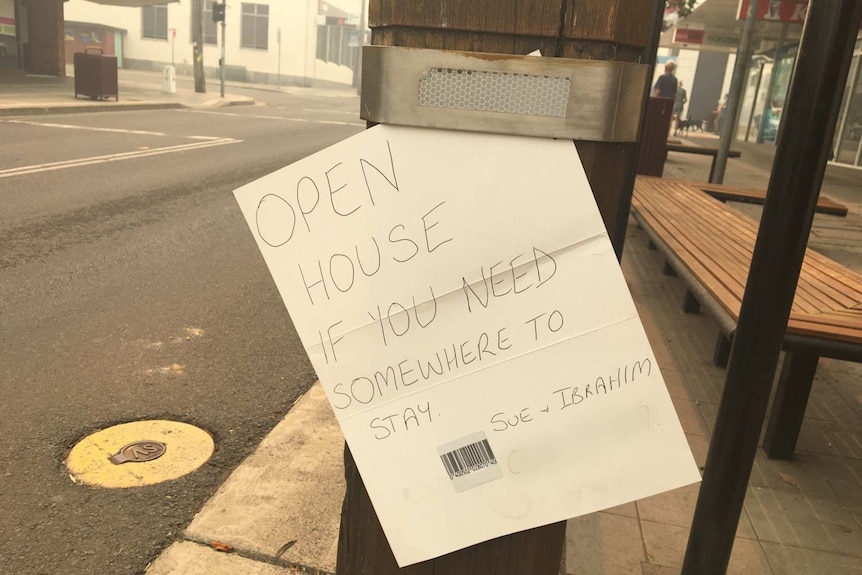 OPEN
HOUSE
IF YOU NEED
SOMEWHERE TO
STAY.
SUE + IBRAHIM.
SV